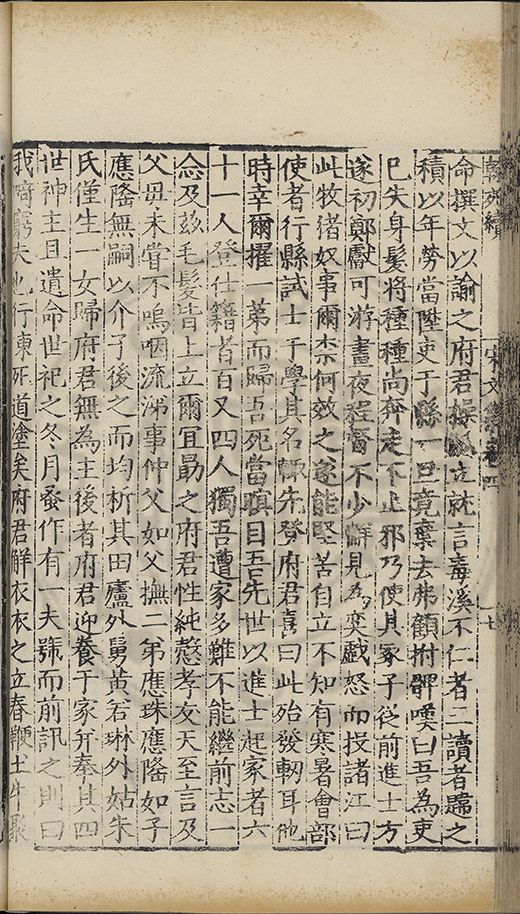 命撰文以諭之府君操觚立就言毒溪不仁者三讀者韙之
積以年勞當陞吏于縣一旦竟棄去弗顧拊髀嘆曰吾為吏
已失身髮將種種尚奔走不止邪乃使其冢子從前進士方
遂初鄭獻可游晝夜程督不少懈見為奕戲怒而投諸江曰
此牧猪奴事爾柰何效之遂能堅苦自立不知有寒暑會部
使者行縣試士于學其名輒先登府君喜曰此殆發軔耳他
時幸爾擢一第而歸吾死當瞑目吾先世以進士起家者六
十一人登仕籍者百又四人獨吾遭家多難不能繼前志一
念及玆毛髮皆上立爾冝勗之府君性純慤孝友天至言及
父毋未甞不嗚咽流涕事仲父如父撫二弟應珠應隆如子
應隆無嗣以介子後之而均析其田廬外舅黄君琳外姑朱
氏僅生一女歸府君無為主後者府君迎養于家并奉其四
世神主且遺命世祀之冬月蚤作有一夫號而前訊之則曰
我啇窮夫也行凍死道塗矣府君觧衣衣之立春鞭土牛聚